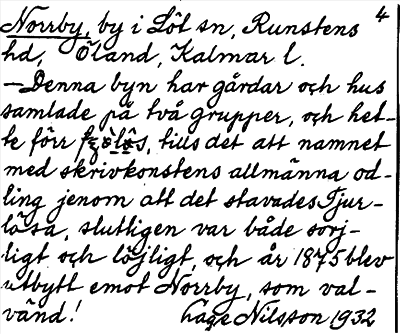 4
Norrby, by i Löt sn, Runstens
hd, Öland, Kalmar l.
—Denna byn har gårdar och hus
samlade på två grupper, och het-
te förr, tills det att namnet
med skrivkonstens allmänna od-
ling jenom att det stavades Tjur-
lösa, slutligen var både sorj-
ligt och löjligt, och år 1875 blev
utbytt emot Norrby, som val-
vänd! Lage Nilsson 1932